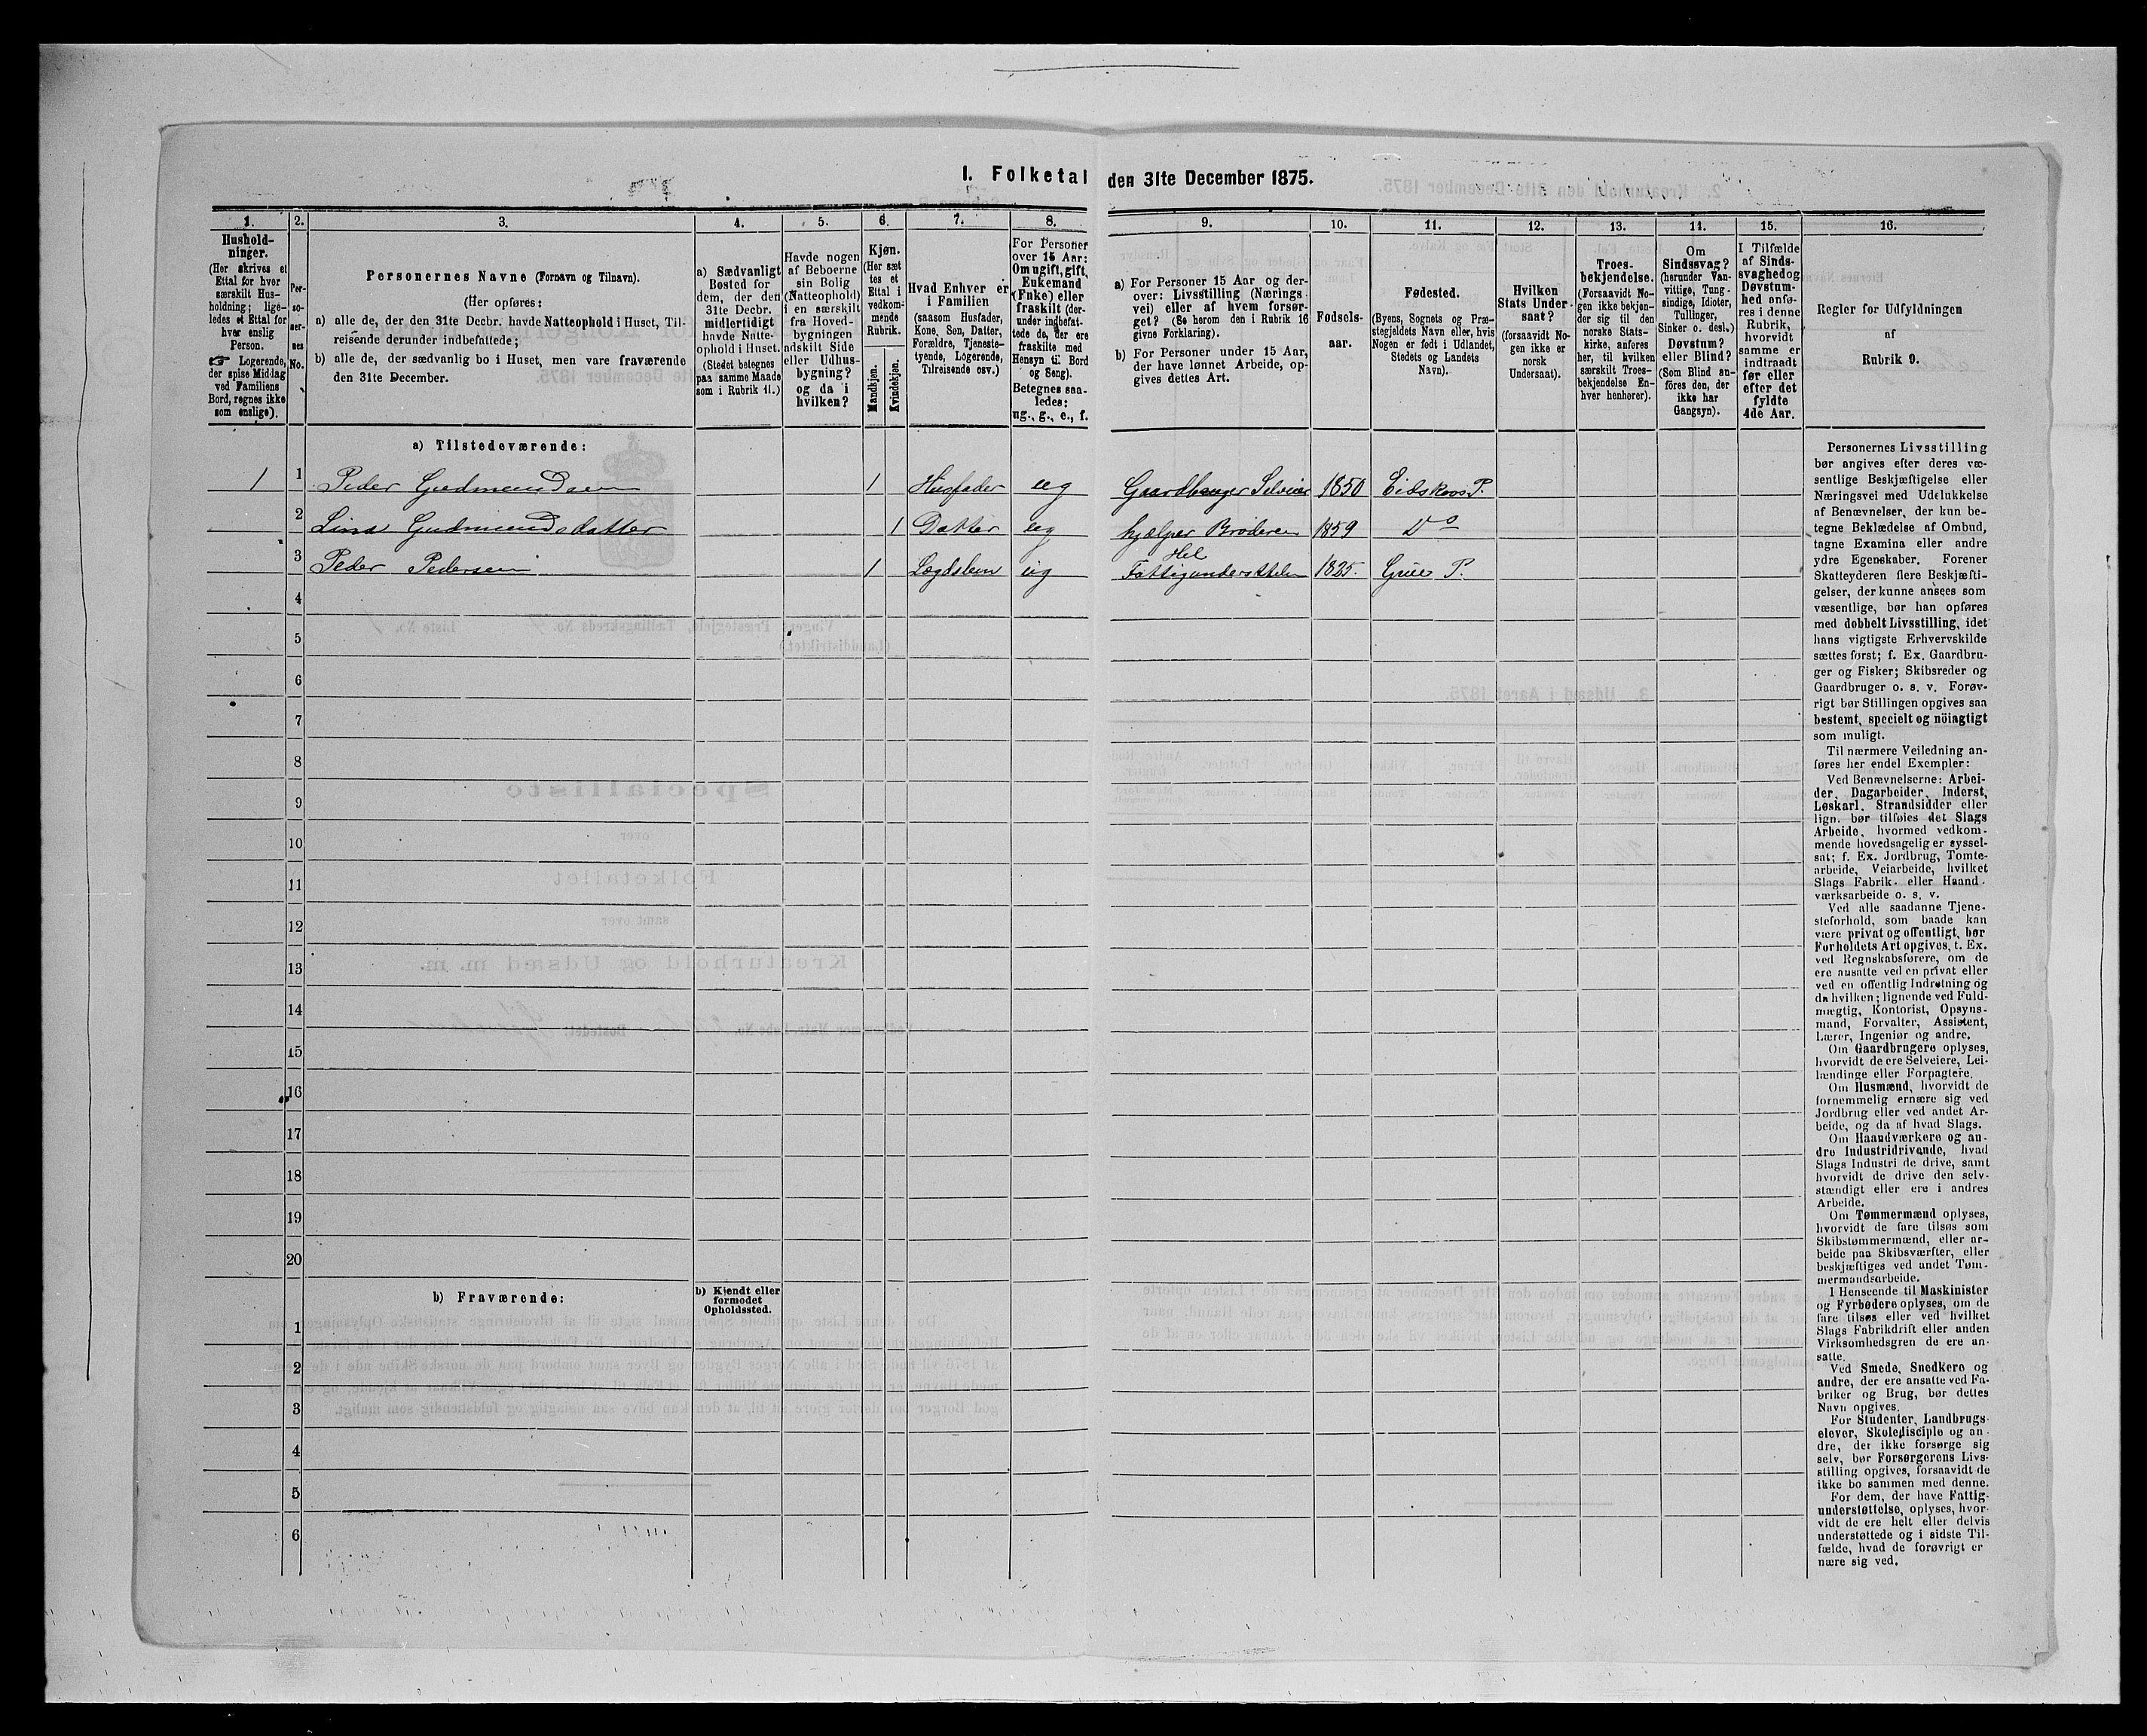 I. Folketal den 31te December 1875.
1. 2. 3. 4. 5. 6. 7. 8. 9. 10. 11. 12. 13. 14. 15. 16.
Hushold-
ninger.
(Her skrives et
Ettal for hver
særskilt Hus-
holdning; lige-
ledes et Ettal for
hver enslig
Person.
☞ Logerende,
der spise Middag
ved Familiens
Bord, regnes ikke
som enslige).
Per-
so-
ner-
nes
No.
Personernes Navne (Fornavn og Tilnavn).
(Her opføres:
a) alle de, der den 31te Decbr. havde Natteophold i Huset, Til-
reisende derunder indbefattede;
b) alle de, der sædvanlig bo i Huset, men vare fraværende
den 31te December.
a) Sædvanligt
Bosted for
dem, der den
31te Decbr.
midlertidigt
havde Natte-
ophold i Huset.
(Stedet betegnes
paa samme Maade
som i Rubrik 11.)
Havde nogen
af Beboerne
sin Bolig
(Natteophold)
i en særskilt
fra Hoved-
bygningen
adskilt Side
eller Udhus-
bygning?
og da i
hvilken?
Kjøn.
(Her sæt
tes et
Ettal i
vedkom-
mende
Rubrik.
Mandkjøn.
Kvindekjøn.
Hvad Enhver er
i Familien
(saasom Husfader,
Kone, Søn, Datter,
Forældre, Tjeneste-
tyende, Logerende,
Tilreisende osv.)
For Personer
over 15 Aar:
Om ugift, gift,
Enkemand
(Enke) eller
fraskilt (der-
under indbefat-
tede de, der ere
fraskilte med
Hensyn til Bord
og Seng).
Betegnes saa-
ledes:
ug., g., e., f.
a) For Personer 15 Aar og der-
over: Livsstilling (Nærings-
vei) eller af hvem forsør-
get? (Se herom den i Rubrik 16
givne Forklaring).
b) For Personer under 15 Aar,
der have lønnet Arbeide, op-
gives dettes Art.
Fødsels-
aar.
Fødested.
(Byens, Sognets og Præ-
stegjeldets Navn eller, hvis
Nogen er født i Udlandet,
Stedets og Landets
Navn).
Hvilken
Stats Under-
saat?
(forsaavidt No-
gen ikke er
norsk
Undersaat).
Troes-
bekjendelse.
(Forsaavidt No-
gen ikke bekjen-
der sig til den
norske Stats-
kirke, anføres
her, til hvilken
særskilt Troes-
bekjendelse En-
hver henhører).
Om
Sindssvag?
(herunder Van-
vittige, Tung-
sindige, Idioter,
Tullinger,
Sinker o. desl.)
Døvstum?
eller Blind?
(Som Blind an-
føres den, der
ikke har
Gangsyn).
I Tilfælde
af Sinds-
svaghed og
Døvstum-
hed anfø-
res i denne
Rubrik,
hvorvidt
samme er
indtraadt
før eller
efter det
fyldte
4de Aar.
Regler for Udfyldningen
af
Rubrik 9.
a) Tilstedeværende:
1 1 Peder Gudmundsen 1 Husfader ug Gaardbruger Selveier 1850 Eidskovs P.
2 Lina Gudmundsdatter 1 Datter ug hjælper Broderen 1859 Do
3 Peder Pedersen 1 Lægdslem ug Hel Fattigunderstttelse 1825. Grue P.
4
5
6
7
8
9
10
11
12
13
14
15
16
17
18
19
20
b) Fraværende:
b) Kjendt eller
formodet
Opholdssted.
1
2
3
4
5
6
Personernes Livsstilling
bør angives efter deres væ-
sentlige Beskjæftigelse eller
Næringsvei med Udelukkelse
af Benævnelser, der kun be-
tegne Beklædelse af Ombud,
tagne Examina eller andre
ydre Egenskaber. Forener
Skatteyderen flere Beskjæfti-
gelser, der kunne ansees som
væsentlige, bør han opføres
med dobbelt Livsstilling, idet
hans vigtigste Erhvervskilde
sættes først; f. Ex. Gaardbru-
ger og Fisker; Skibsreder og
Gaardbruger o. s. v. Forøv-
rigt bør Stillingen opgives saa
bestemt, specielt og nøiagtigt
som muligt.
Til nærmere Veiledning an-
føres her endel Exempler:
Ved Benævnelserne: Arbei-
der, Dagarbeider, Inderst,
Løskarl, Strandsidder eller
lign. bør tilføies det Slags
Arbeide, hvormed vedkom-
mende hovedsagelig er syssel-
sat; f. Ex. Jordbrug, Tomte-
arbeide, Veiarbeide, hvilket
Slags Fabrik- eller Haand-
værksarbeide o. s. v.
Ved alle saadanne Tjene-
steforhold, som baade kan
være privat og offentligt, bør
Forholdets Art opgives, t. Ex.
ved Regnskabsførere, om de
ere ansatte ved en privat eller
ved en offentlig Indretning og
da hvilken; lignende ved Fuld-
mægtig, Kontorist, Opsyns-
mand, Forvalter, Assistent,
Lærer, Ingeniør og andre.
Om Gaardbrugere oplyses,
hvorvidt de ere Selveiere, Lei-
lændinge eller Forpagtere.
Om Husmænd, hvorvidt de
fornemmelig ernære sig ved
Jordbrug eller ved andet Ar-
beide, og da af hvad Slags.
Om Haandværkere og an-
dre Industridrivende, hvad
Slags Industri de drive, samt
hvorvidt de drive den selv-
stændigt eller ere i andres
Arbeide.
Om Tømmermænd oplyses,
hvorvidt de fare tilsøs som
Skibstømmermænd, eller ar-
beide paa Skibsværfter, eller
beskjæftiges ved andet Tøm-
mermandsarbeide.
I Henseende til Maskinister
og Fyrbødere oplyses, om de
fare tilsøs eller ved hvilket
Slags Fabrikdrift eller anden
Virksomhedsgren de ere an-
satte.
Ved Smede, Snedkere og
andre, der ere ansatte ved Fa-
briker og Brug, bør dettes
Navn opgives.
For Studenter, Landbrugs-
elever, Skoledisciple og an-
dre, der ikke forsørge sig
selv, bør Forsørgerens Livs-
stilling opgives, forsaavidt de
ikke bo sammen med denne.
For dem, der have Fattig-
understøttelse, oplyses, hvor-
vidt de ere helt eller delvis
understøttede og i sidste Til-
fælde, hvad de forøvrigt er-
nære sig ved.